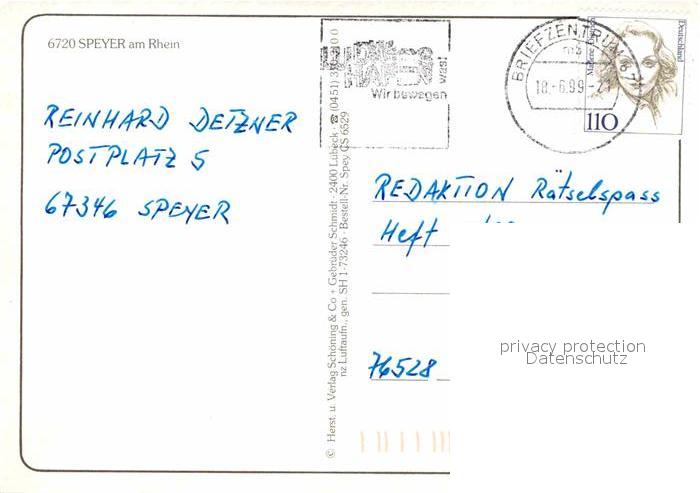 6720 SPEYER am Rhein
REINHARD DETZNER
POSTPLATZ 5
67346 SPEYER
© Herst. u. Verlag Schöning & Co + Gebrüder Schmidt · 2400 Lübeck · ☎ (0451)
nz Luftaufn., gen. SH 1-73246 · Bestell-Nr. Spey CS 6529
was!
Wir bewegen
BRIEFZENTRUM 67
mb
18.-6.99-21
Deutschland
110
REDAKTION Rätselspass
Heft
76528
privacy protection
Datenschutz